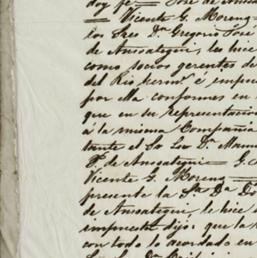 doy fe = José de Ansoa
= Vicente G. Moreno =
los Sres Dn Gregorio José
de Ansoategui, les hice
como socios gerentes de
del Rio hermo é impue
por ella conformes en
que en su representacion
á la misma Compañia
tante el Sr Lcdo Dn Manu
Po de Ansoategui = G.
Vicente G. Moreno =
presente la Sra Da Do
de Ansoategui, le hice
impuesta dijo: que la
con todo lo acordado en